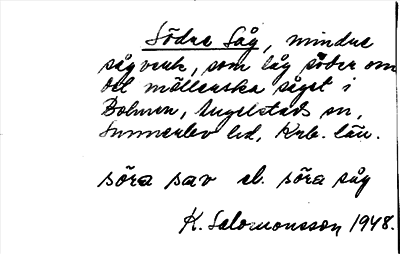 Södre Såg, mindre
sågverk, som låg söder om
det möllerska såget i
Bolmen, Angelstads sn,
Sunnerbo hd, Krb. län.
söra sav el. söra såg
K. Salomonsson 1948.